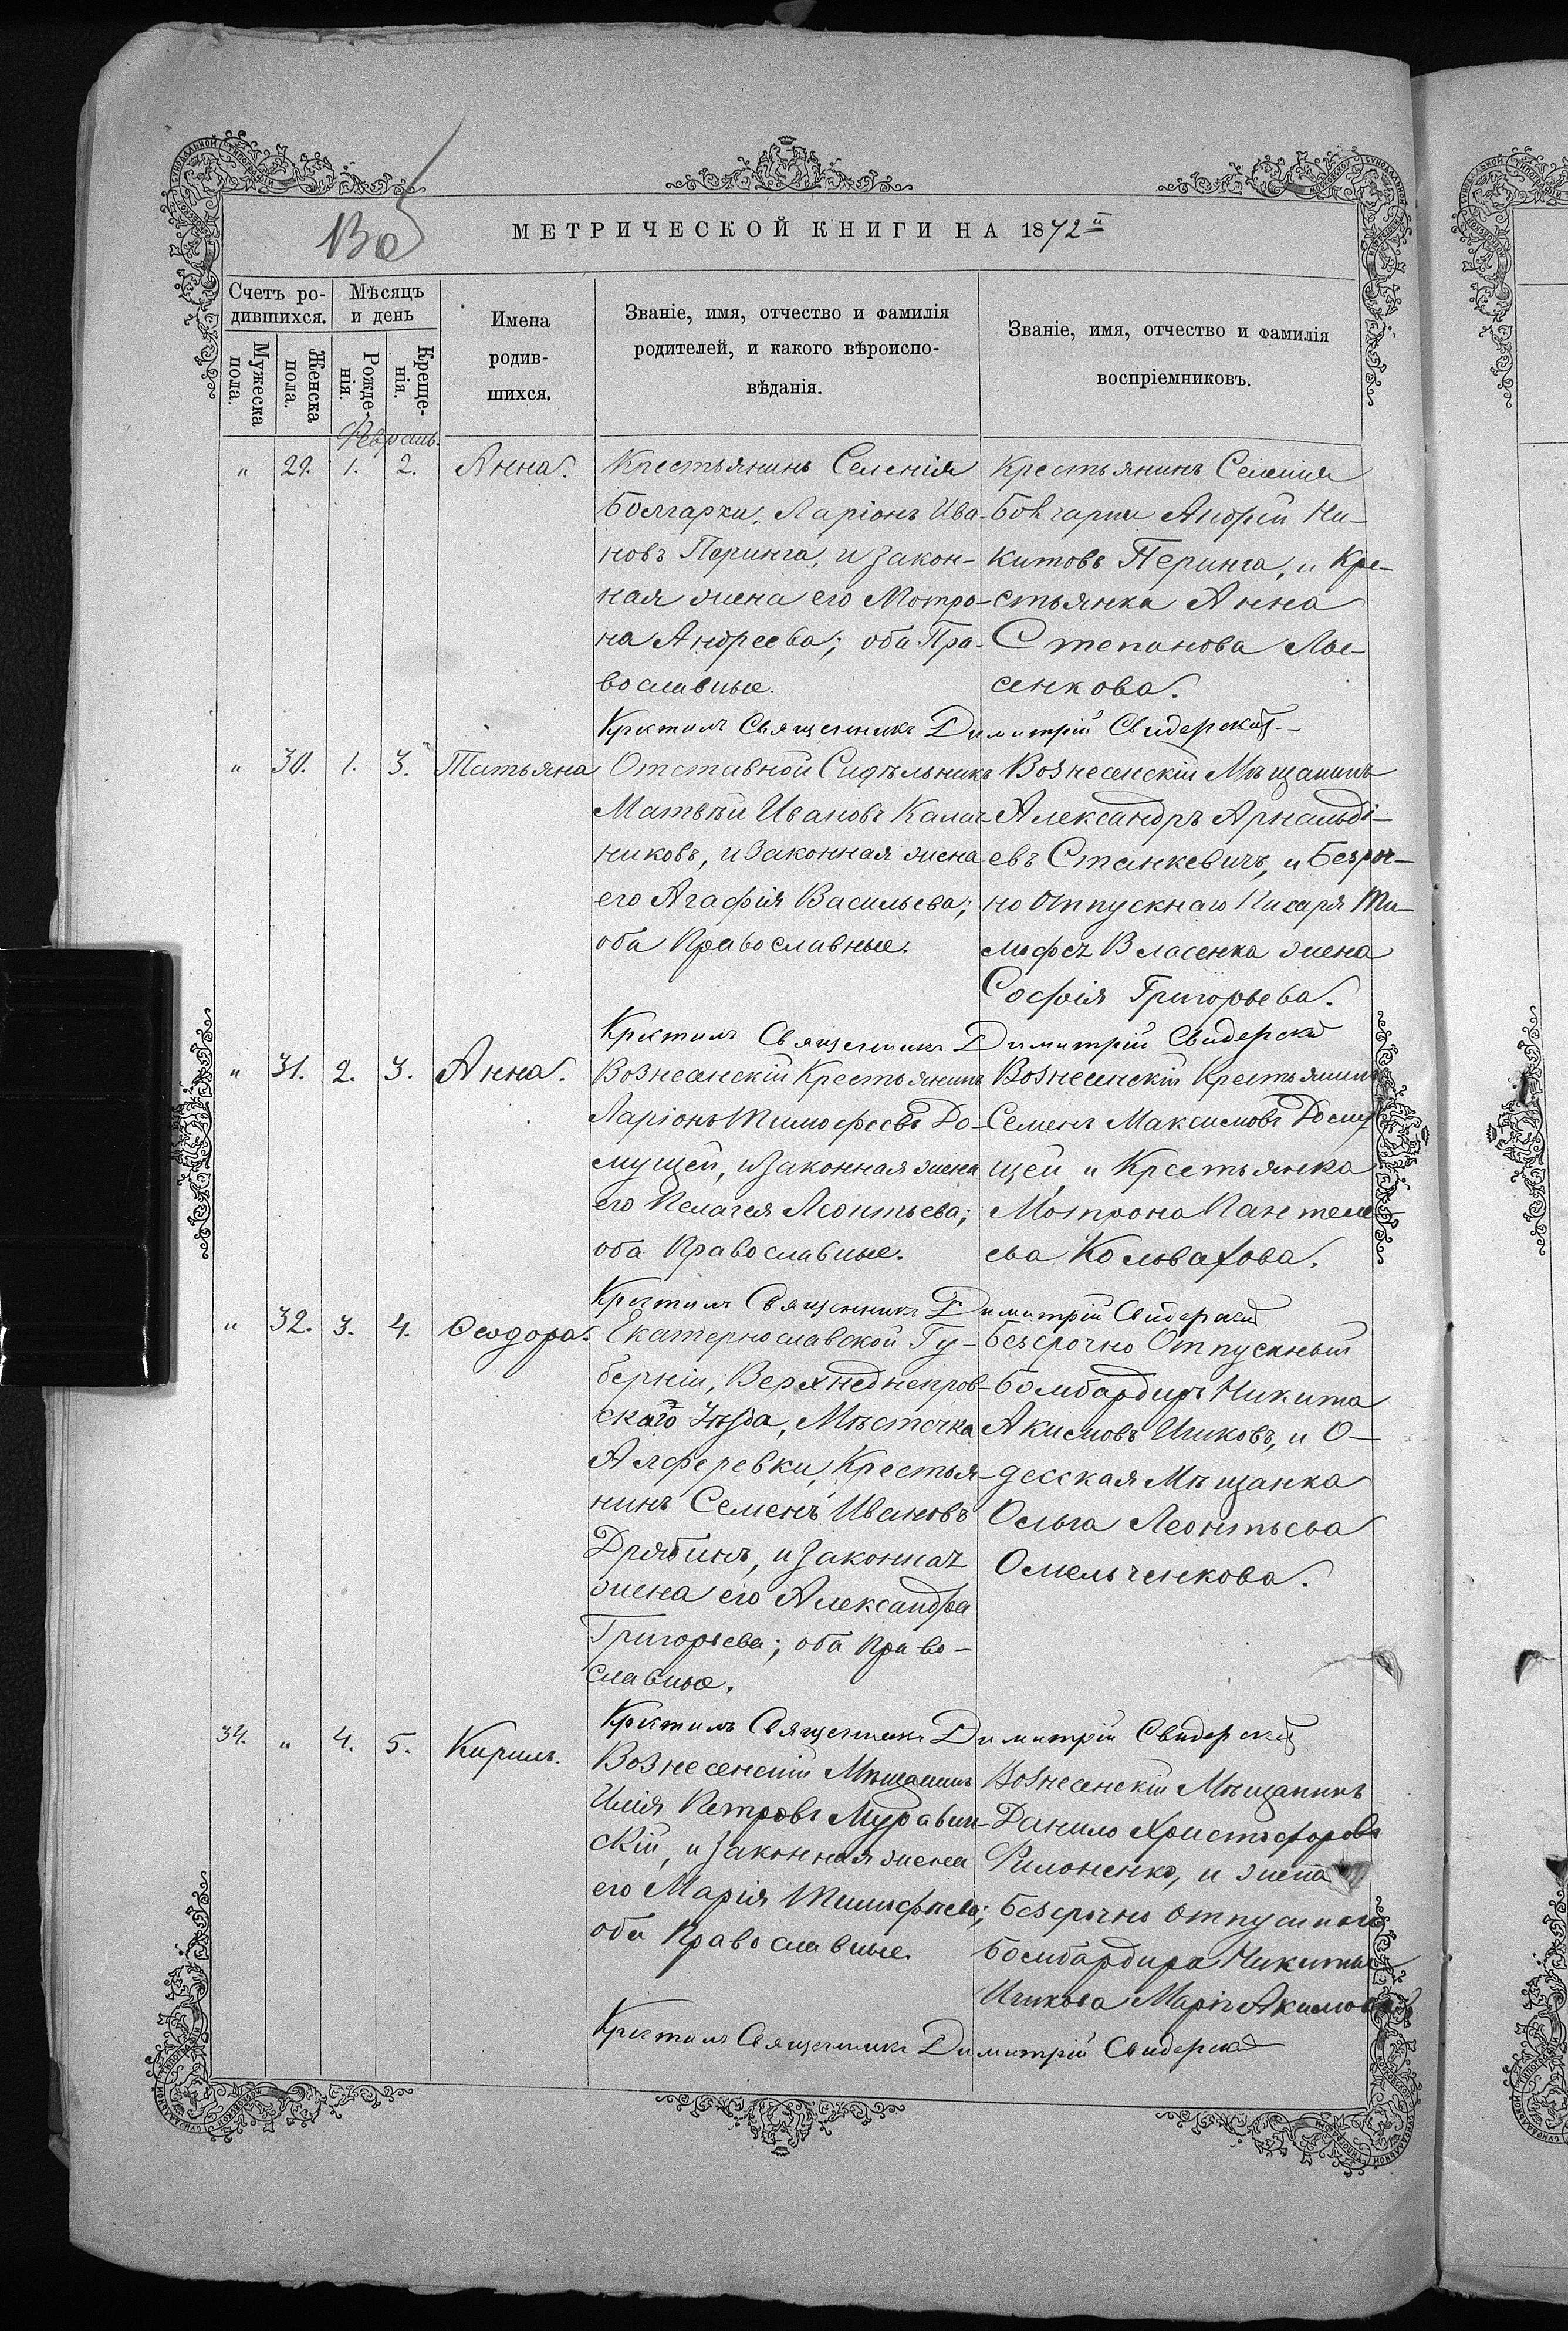 МЕТРИЧЕСКОЙ КНИГИ НА 1872й
Счетъ ро-
дившихся.
Мужеска
пола.
Женска
пола.
Мѣсяцъ
и день
Рожде-
нія.
Креще-
нія.
Имена
родив-
шихся.
Званіе, имя, отчество и фамилія
родителей, и какого вѣроиспо-
вѣданія.
Званіе, имя, отчество и фамилія
воспріемниковъ.
Февраль.
" 29. 1. 2. Анна.
Крестьянинъ Селенія
Болгарки, Ларіонъ Ива-
новъ Перинга, и закон-
ная жена его Мотро-
на Андреева; оба Пра-
вославные.
Крестьянинъ Селенія
Болгарки Андрей Ни-
китовъ Перинга, и Кре-
стьянка Анна
Степанова Лы-
сенкова.
Крестилъ Священникъ Димитрій Свидерскій
" 30. 1. 3. Татьяна
Отставной Сидѣльникъ
Матвѣй Ивановъ Калач-
никовъ, и законная жена
его Агафія Васильева;
оба Православные.
Вознесенскій Мѣщанинъ
Александръ Арнальді-
евъ Станкевичъ, и Безроч-
но Отпускнаго Писаря Ти-
мофея Власенка жена
Софія Григорьева.
Крестилъ Священникъ Димитрій Свидерскій
" 31. 2. 3. Анна.
Вознесенскій Крестьянинъ
Ларіонъ Тимофеевъ До-
мущей, и законная жена
его Пелагея Леонтьева;
оба Православные.
Вознесенскій Крестьянинъ
Семенъ Максимовъ Дому-
щей, и Крестьянка
Мотрона Пантеле
ева
Крестилъ Священникъ Димитрій Свидерскій
" 32. 3. 4. Ѳеодора.
Екатеринославской Гу-
берніи, Верхнеднепров-
скаго Уѣзда, Мѣстечка
Алферевки, Крестья-
нинъ Семенъ Ивановъ
Дрябинъ, и законная
жена его Александра
Григорьева; оба Право-
славные.
Безсрочно Отпускный
Бомбардиръ Никита
Акимовъ Ичиковъ, и О-
десская Мѣщанка
Ольга Леонтьева
Омельченкова.
Крестилъ Священникъ Димитрій Свидерскій
34. " 4. 5. Кирилъ.
Вознесенскій Мѣщанинъ
Илія Петровъ Муравин-
скій, и законная жена
его Марія Тимофеева;
оба Православные.
Вознесенскій Мѣщанинъ
Данило Христофоровъ
Филоненко, и жена
Безсрочно отпускнаго
Бомбардира Никиты
Ичикова Марія Акимова
Крестилъ Священникъ Димитрій Свидерскій